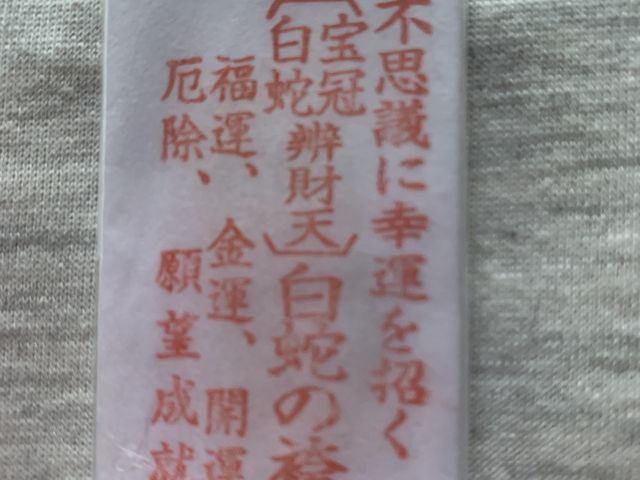 不思議に幸運を招く
〔宝冠白蛇辨財天〕白蛇の
福運、金運、開運
厄除、願望成就